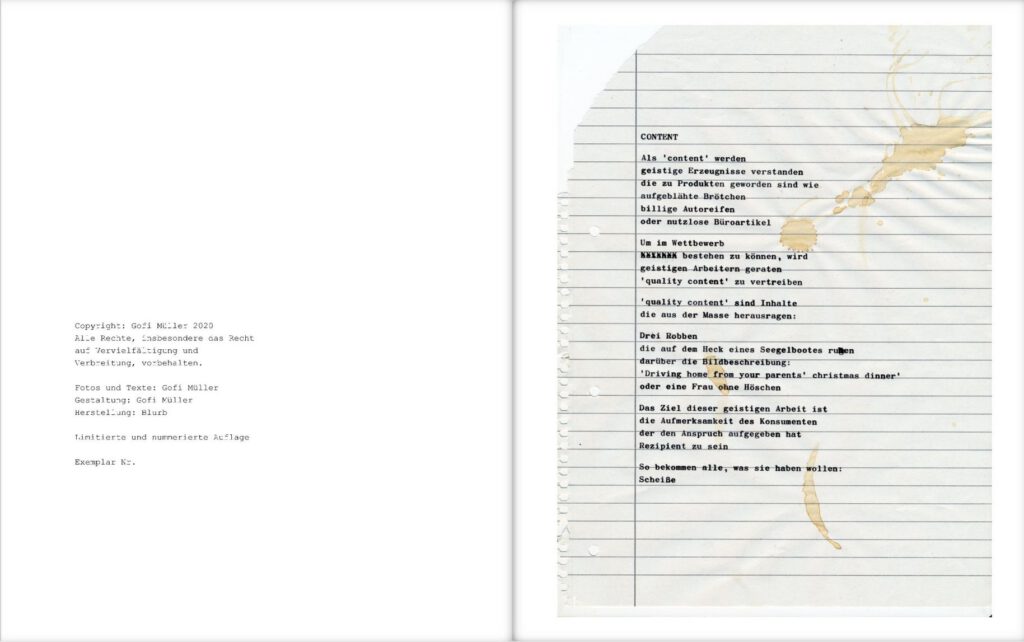 Copyright: Gofi Müller 2020
Alle Rechte, insbesondere das Recht
auf Vervielfältigung und
Verbreitung, vorbehalten.
Fotos und Texte: Gofi Müller
Gestaltung: Gofi Müller
Herstellung: Blurb
Limitierte und nummerierte Auflage
Exemplar Nr.
CONTENT
Als 'content' werden
geistige Erzeugnisse verstanden
die zu Produkten geworden sind wie
aufgeblähte Brötchen
billige Autoreifen
oder nutzlose Büroartikel
Um im Wettbewerb
bestehen zu können, wird
geistigen Arbeitern geraten
'quality content' zu vertreiben
'quality content' sind Inhalte
die aus der Masse herausragen:
Drei Robben
die auf dem Heck eines Seegelbootes ruhen
darüber die Bildbeschreibung:
'Driving home from your parents' christmas dinner'
oder eine Frau ohne Höschen
Das Ziel dieser geistigen Arbeit ist
die Aufmerksamkeit des Konsumenten
der den Anspruch aufgegeben hat
Rezipient zu sein
So bekommen alle, was sie haben wollen:
Scheiße